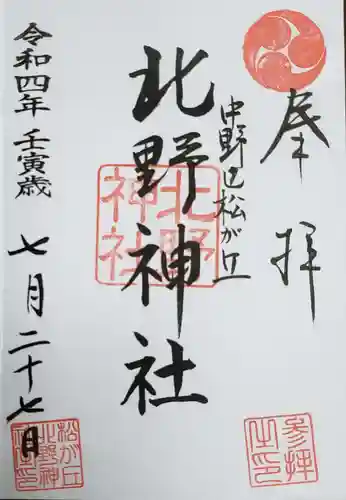 奉拝
中野区松が丘
北野神社
令和四年 壬寅歳 七月二十七日
北野
神社
参拝
之印
松が丘
北野神
社之印